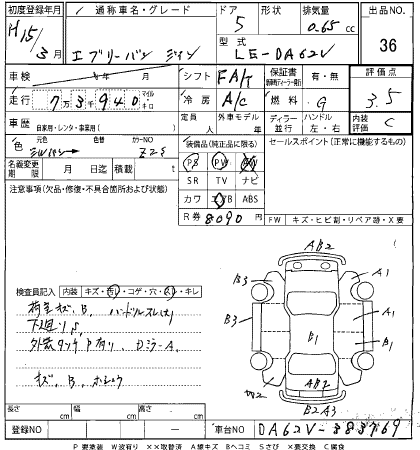 初度登録年月 H15/3月
通称車名・グレード エブリーバン ジョイン
ドア 5 形状
排気量 0.65 cc
型式 LE-DA62V
出品NO. 36
車検 年 月
シフト FA/T
保証書 有・無
評価点 3.5
走行 7万3千940 マイル キロ
冷房 A/C
燃料 G
内装 C
車歴 自家用・レンタ・事業用( )
定員 人
外車モデル 年
ディーラー 並行
ハンドル 左・右
色 元色 色替 カラーNO Z2S
装備品(純正品に限る)
セールスポイント(正常に機能するもの)
PS PW AW
名義変更期限 月 日迄 積載 t
SR TV ナビ
注意事項(欠品・修復・不具合箇所および状態)
カワ エヤB ABS
R券 8090 円
FW キズ・ヒビ割・リペア跡・X要
検査員記入 内装 キズ・汚レ・コゲ・穴・スレ・キレ
荷室キズ、B、ハンドルスレ大
下廻りS
外装タッチP有り、DミラーA
キズ、B、ホシュウ
AB2
B3
A1
B3
A1
B1
B1
AB2
W2
B2A3
長さ cm 幅 cm 高さ cm
登録NO
車台NO DA62V-383769
P要塗装 W波有り XX取替済 A線キズ Bヘコミ Sさび X要交換 C腐食